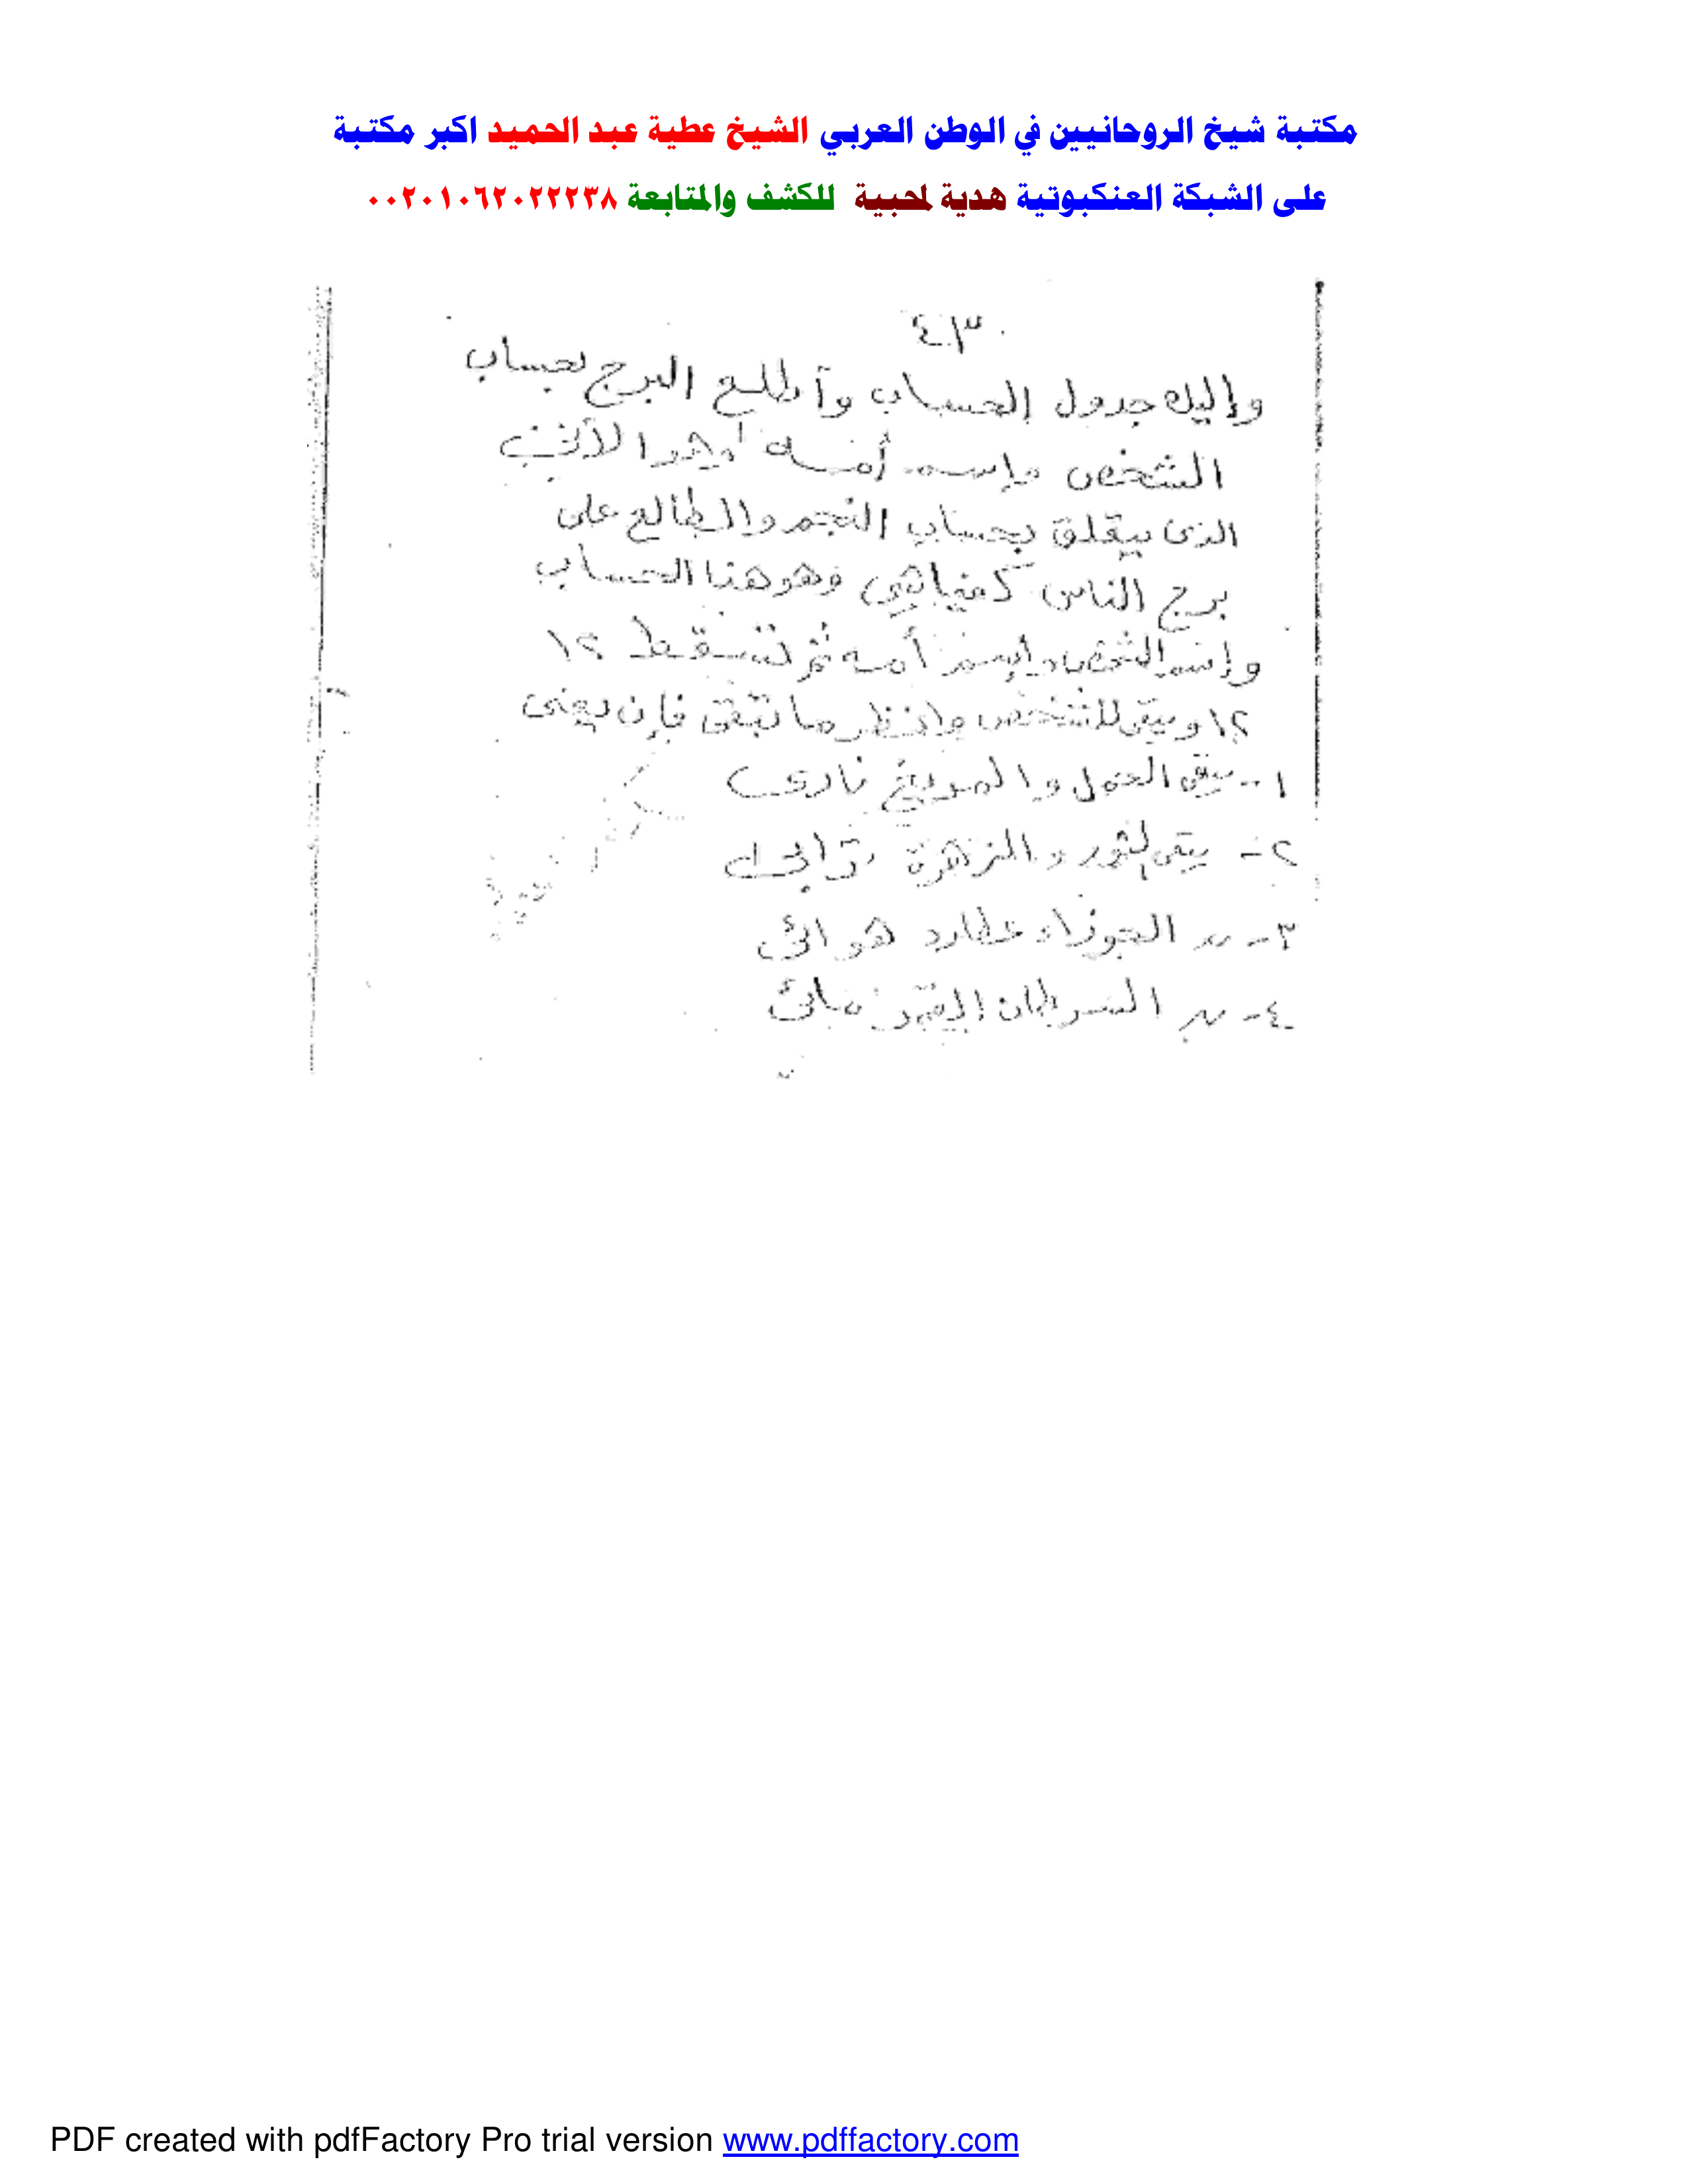 مكتبة شيخ الروحانيين في الوطن العربي الشيخ عطية عبد الحميد اكبر مكتبة
على الشبكة العنكبوتية هدية لمحبية للكشف والمتابعة ٠٠٢٠١٠٦٢٠٢٢٢٣٨
٤٣
وإليك جدول الحساب وأطلع البرج لحساب
الشخص وإسم أمه وهو الأتى
الذى يتعلق بحساب النجم والطالع على
برج الناس وهو هذا الحساب
وإسم الشخص وإسم أمه ثم تسقط ١٢
١٢ ويبقى للشخص وانظر ما تبقى فإن يعنى
١- يبقى الحمل والمريخ نارى
٢- يبقى الثور والزهرة ترابى
٣- الجوزاء عطارد هوائى
٤- السرطان القمر مائى
PDF created with pdfFactory Pro trial version www.pdffactory.com